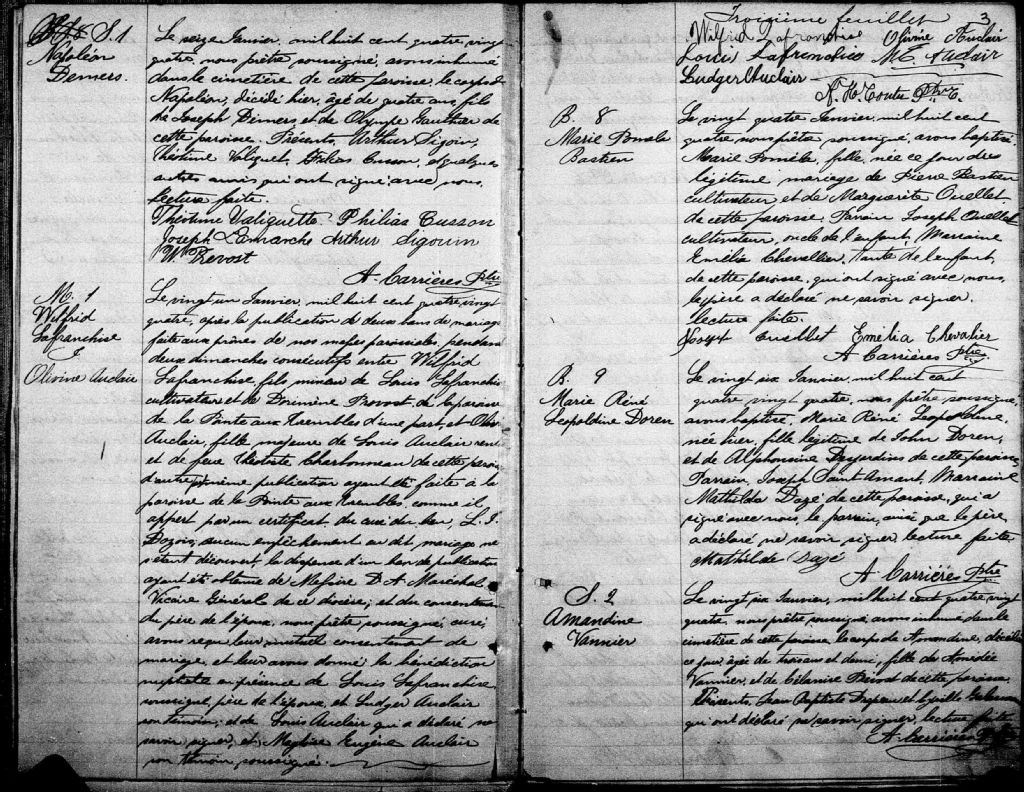 S. 1
Napoléon
Demers.
Le seize Janvier, mil huit cent quatre vingt
quatre, nous prêtre soussigné, avons inhumé
dans le cimetière de cette paroisse, le corps de
Napoléon, décédé hier, âgé de quatre ans, fils
de Joseph Demers et de Olympe Gauthier de
cette paroisse. Présents, Arthur Sigouin,
Théotime Valiquet, Cusson, et quelques
autres amis qui ont signé avec nous.
Lecture faite.
Théotime Valiquette Philias Cusson
Joseph Lamarche Arthur Sigouin
Wm Prevost
A. Carrières Ptre
M. 1
Wilfrid
Lafranchise
&
Olivine Auclair
Le vingt un Janvier, mil huit cent quatre vingt
quatre, après la publication de deux bans de mariage
faite aux prônes de nos messes paroissiales, pendant
deux dimanches consécutifs entre Wilfrid
Lafranchise, fils mineur de Louis Lafranchise
cultivateur et de Prevost, de la paroisse
de la Pointe aux Trembles d'une part, et Olivine
Auclair, fille majeure de Louis Auclair
et de feue Charbonneau de cette paroisse
d'autre publication ayant été faite à la
paroisse de la Pointe aux Trembles, comme il
appert par un certificat du curé du lieu, L. J.
aucun empêchement au dit mariage ne
s'étant découvert, la dispense d'un ban de publication
ayant été obtenue de Messire Maréchal
Vicaire Général de ce diocèse; et du consentement
du père de l'époux, nous prêtre soussigné, curé,
avons reçu leur mutuel consentement de
mariage, et leur avons donné la bénédiction
nuptiale en présence de Louis Lafranchise
soussigné, père de l'époux, et Ludger Auclair
son témoin; et de Louis Auclair qui a déclaré ne
savoir signer, et Eugène Auclair
son témoin soussigné.
Troisième feuillet 3
Wilfrid Lafranchise Olivine Auclair
Louis Lafrenchis M. E. Auclair
Ludger Auclair
Ptre
B. 8
Marie
Bastien
Le vingt quatre Janvier, mil huit cent
quatre nous prêtre soussigné, avons baptisé
Marie, fille, née ce jour du
légitime mariage de Pierre Bastien
cultivateur et de Marguerite Ouellet,
de cette paroisse. Parrain Joseph Ouellet
cultivateur, oncle de l'enfant, Marraine
Emélie Chevallier, Tante de l'enfant,
de cette paroisse, qui ont signé avec nous,
le père a déclaré ne savoir signer.
lecture faite.
Ouellet Emélia Chevalier
A Carrières Ptre
B. 9
Marie Réné
Leopoldine Doren
Le vingt six Janvier, mil huit cent
quatre vingt quatre, nous prêtre soussigné,
avons baptisé, Marie Réné Léopoldine,
née hier, fille légitime de John Doren,
et de Alphonsine Desjardins de cette paroisse
Parrain, Joseph Saint Amant, Marraine
Mathilda Dazé de cette paroisse, qui a
signé avec nous, le parrain, ainsi que le père,
a déclaré ne savoir signer, lecture faite
Mathilde Dazé
A Carrières Ptre
S. 2
Amandine
Vannier
Le vingt six Janvier, mil huit cent quatre vingt
quatre, nous prêtre soussigné, avons inhumé dans le
cimetière de cette paroisse, le corps de Amandine, décédée
ce jour, âgée de trois ans et demi, fille de Amédée
Vannier, et de Célanire de cette paroisse.
Présents, Jean Baptiste et
qui ont déclaré ne savoir signer, lecture faite
A. Carrières Ptre